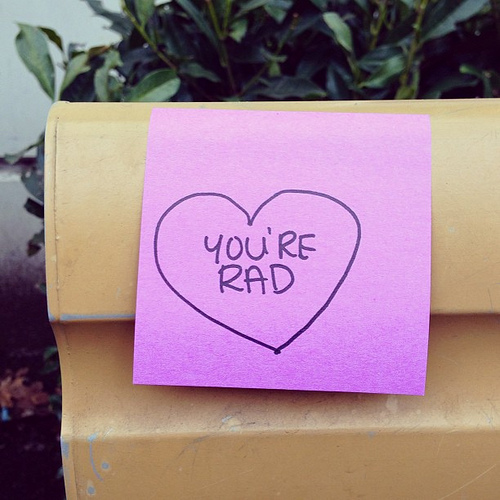 YOU'RE
RAD